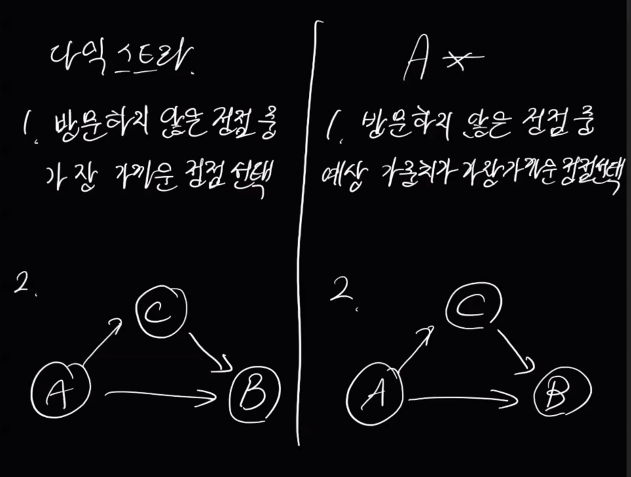 다익스트라.
1. 방문하지 않은 정점 중
가장 가까운 정점 선택
2.
C
A
B
A*
1. 방문하지 않은 정점 중
예상 가중치가 가장 가까운 정점 선택
2.
C
A
B